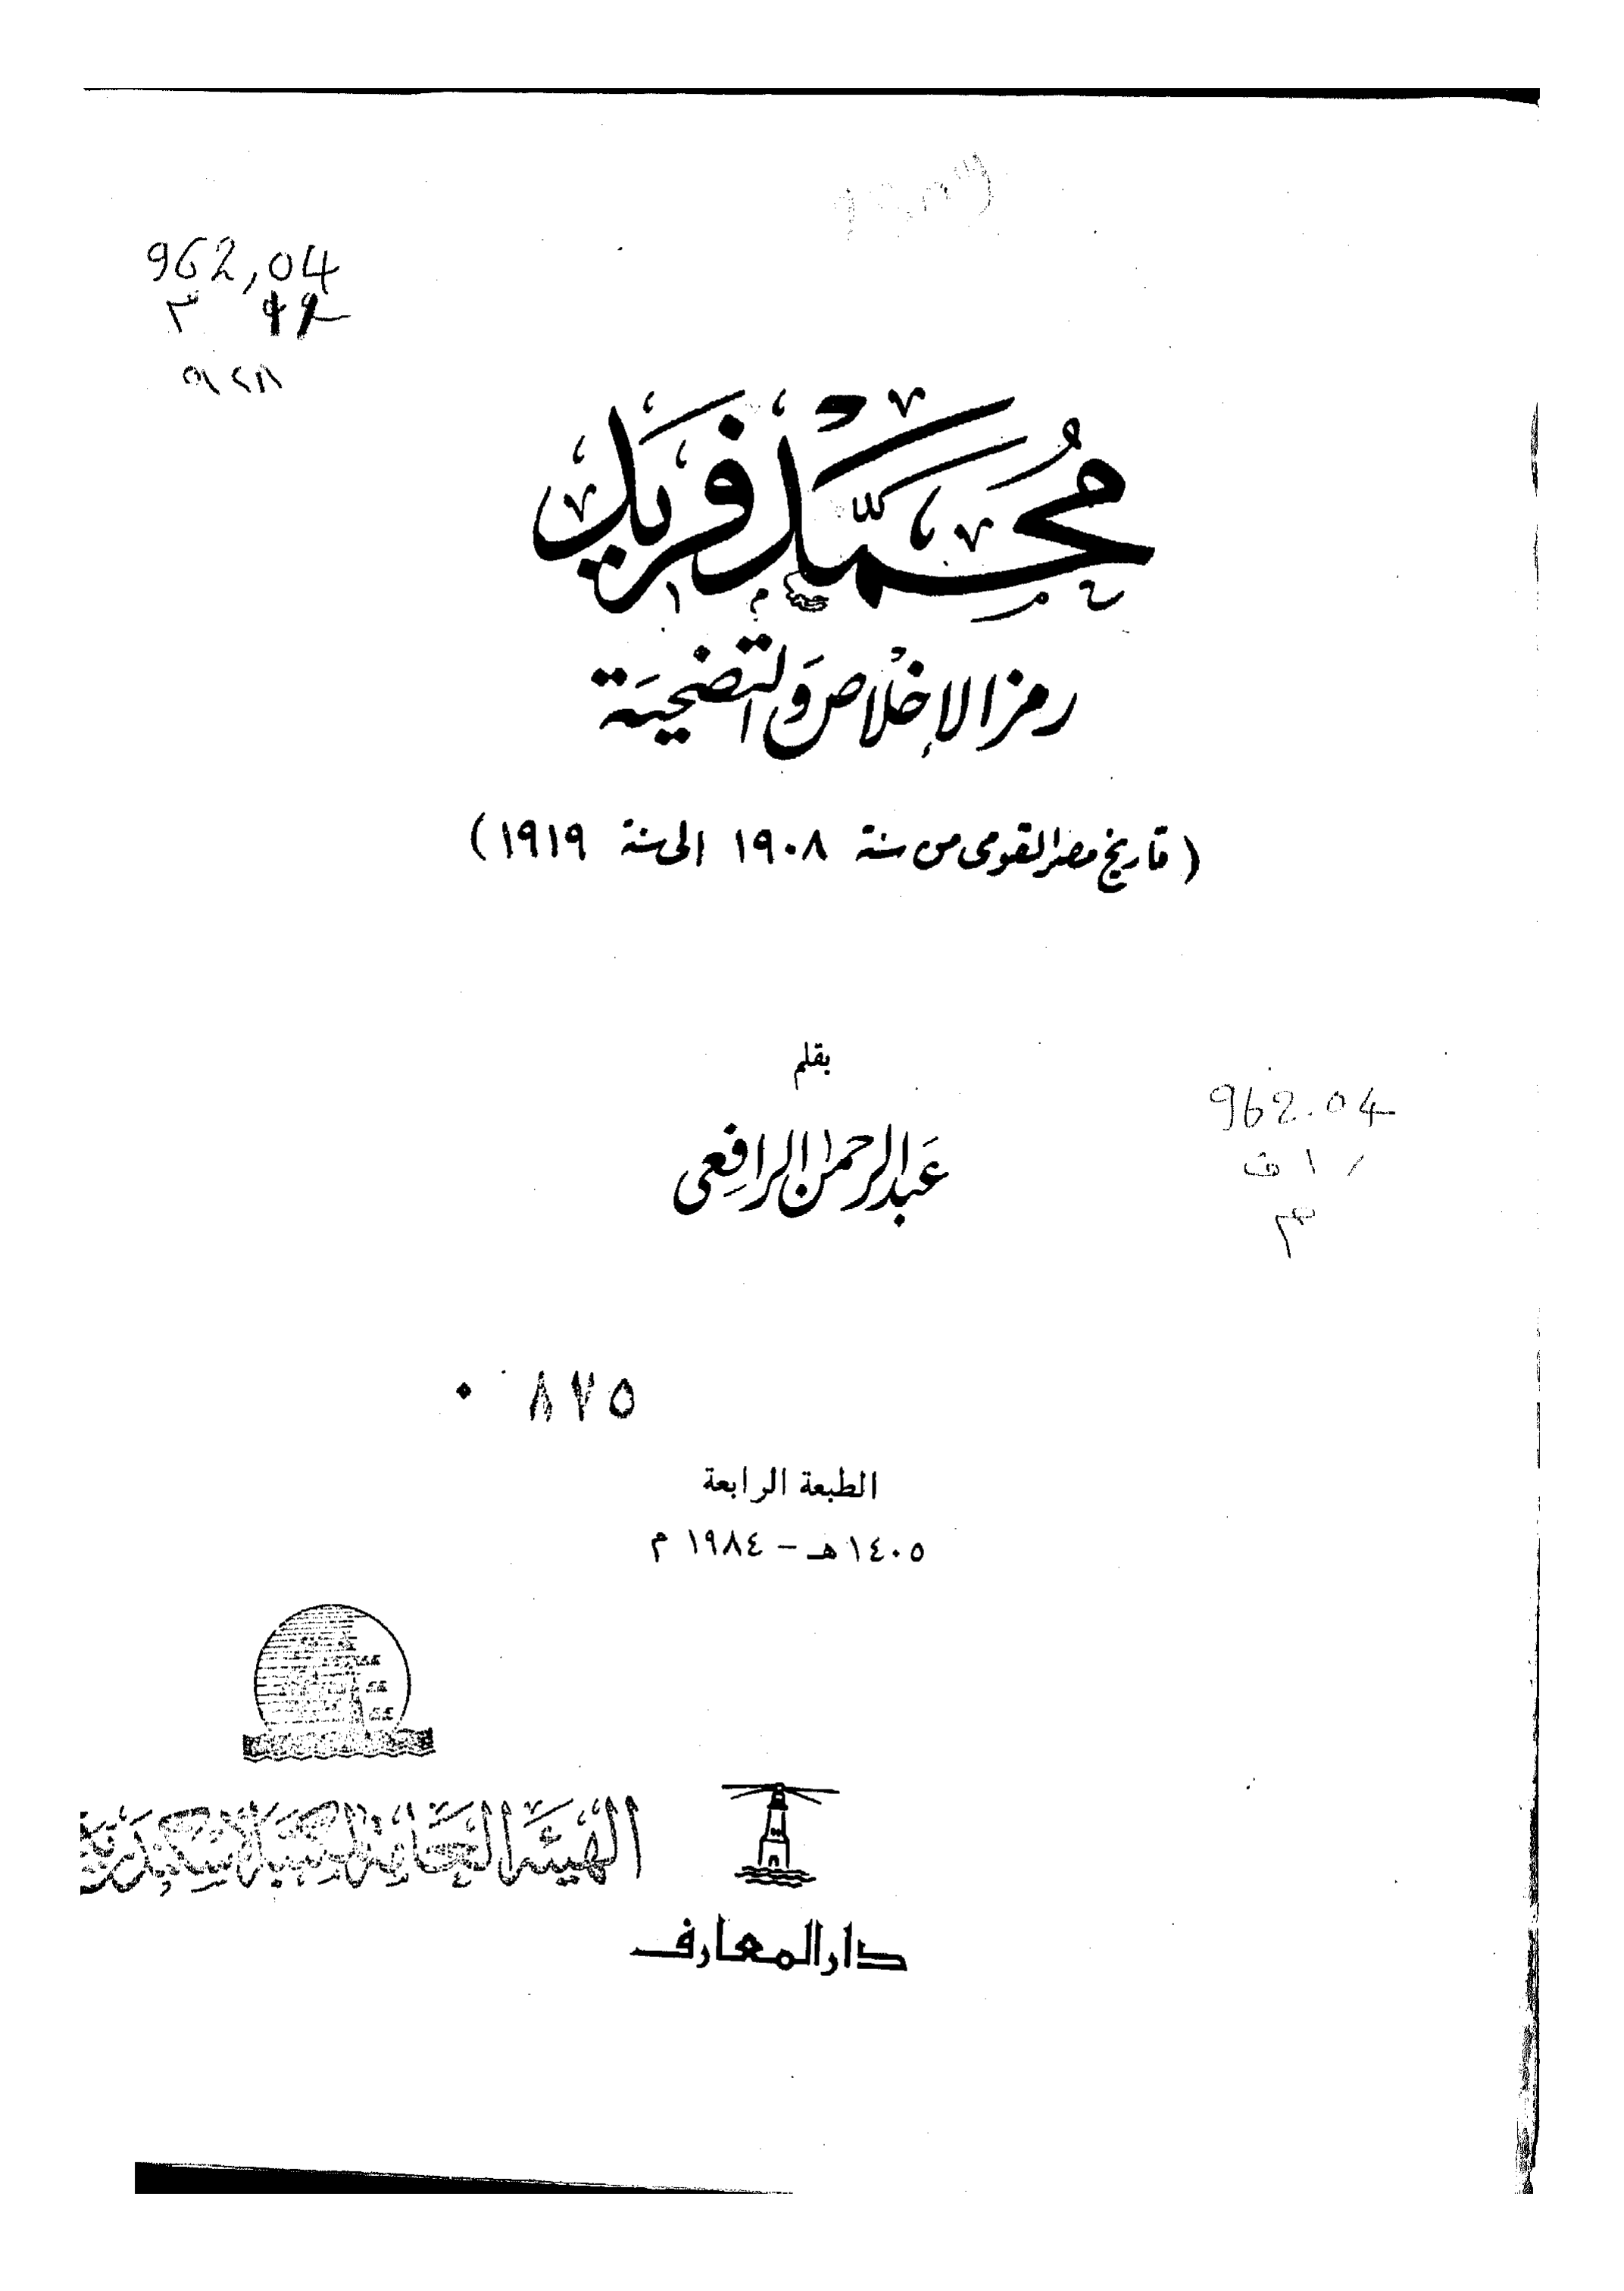 962,04
محمد فريد
رمز الإخلاص والتضحية
(تاريخ مصر القومى من سنة ١٩٠٨ إلى سنة ١٩١٩)
بقلم
عبد الرحمن الرافعى
962.04
٠ ٨٧٥
الطبعة الرابعة
١٤٠٥ هـ - ١٩٨٤ م
الهيئة العامة لمكتبة الاسكندرية
دار المعارف